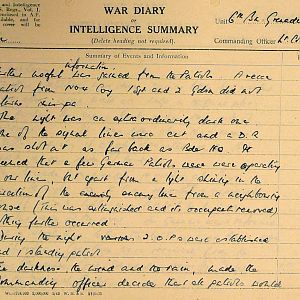 and Intelligence
Regs., Vol. I.
WAR DIARY
or
INTELLIGENCE SUMMARY
(Delete heading not required).
Unit 6th Bn. Grenadi
Commanding Officer Lt. Col
Summary of Events and Information
information
further useful was gained from the Patrols. A recce
patrol from No 4 Coy 1 Sgt and 2 Gdsn did not
return
This night was an extraordinarily dark one
one of the signal lines were cut and a D.R
was shot at as far back as Rear HQ. It
seemed that a few German Patrols were operating
our line. Apart from a light shining in the
direction of the enemy from a neighbouring
house (this was extinguished and its occupant removed)
nothing further occurred.
During the night various 2 O.Ps were established
and 1 standing patrol
The darkness the wind and the rain made the
commanding officer decide that all patrols would